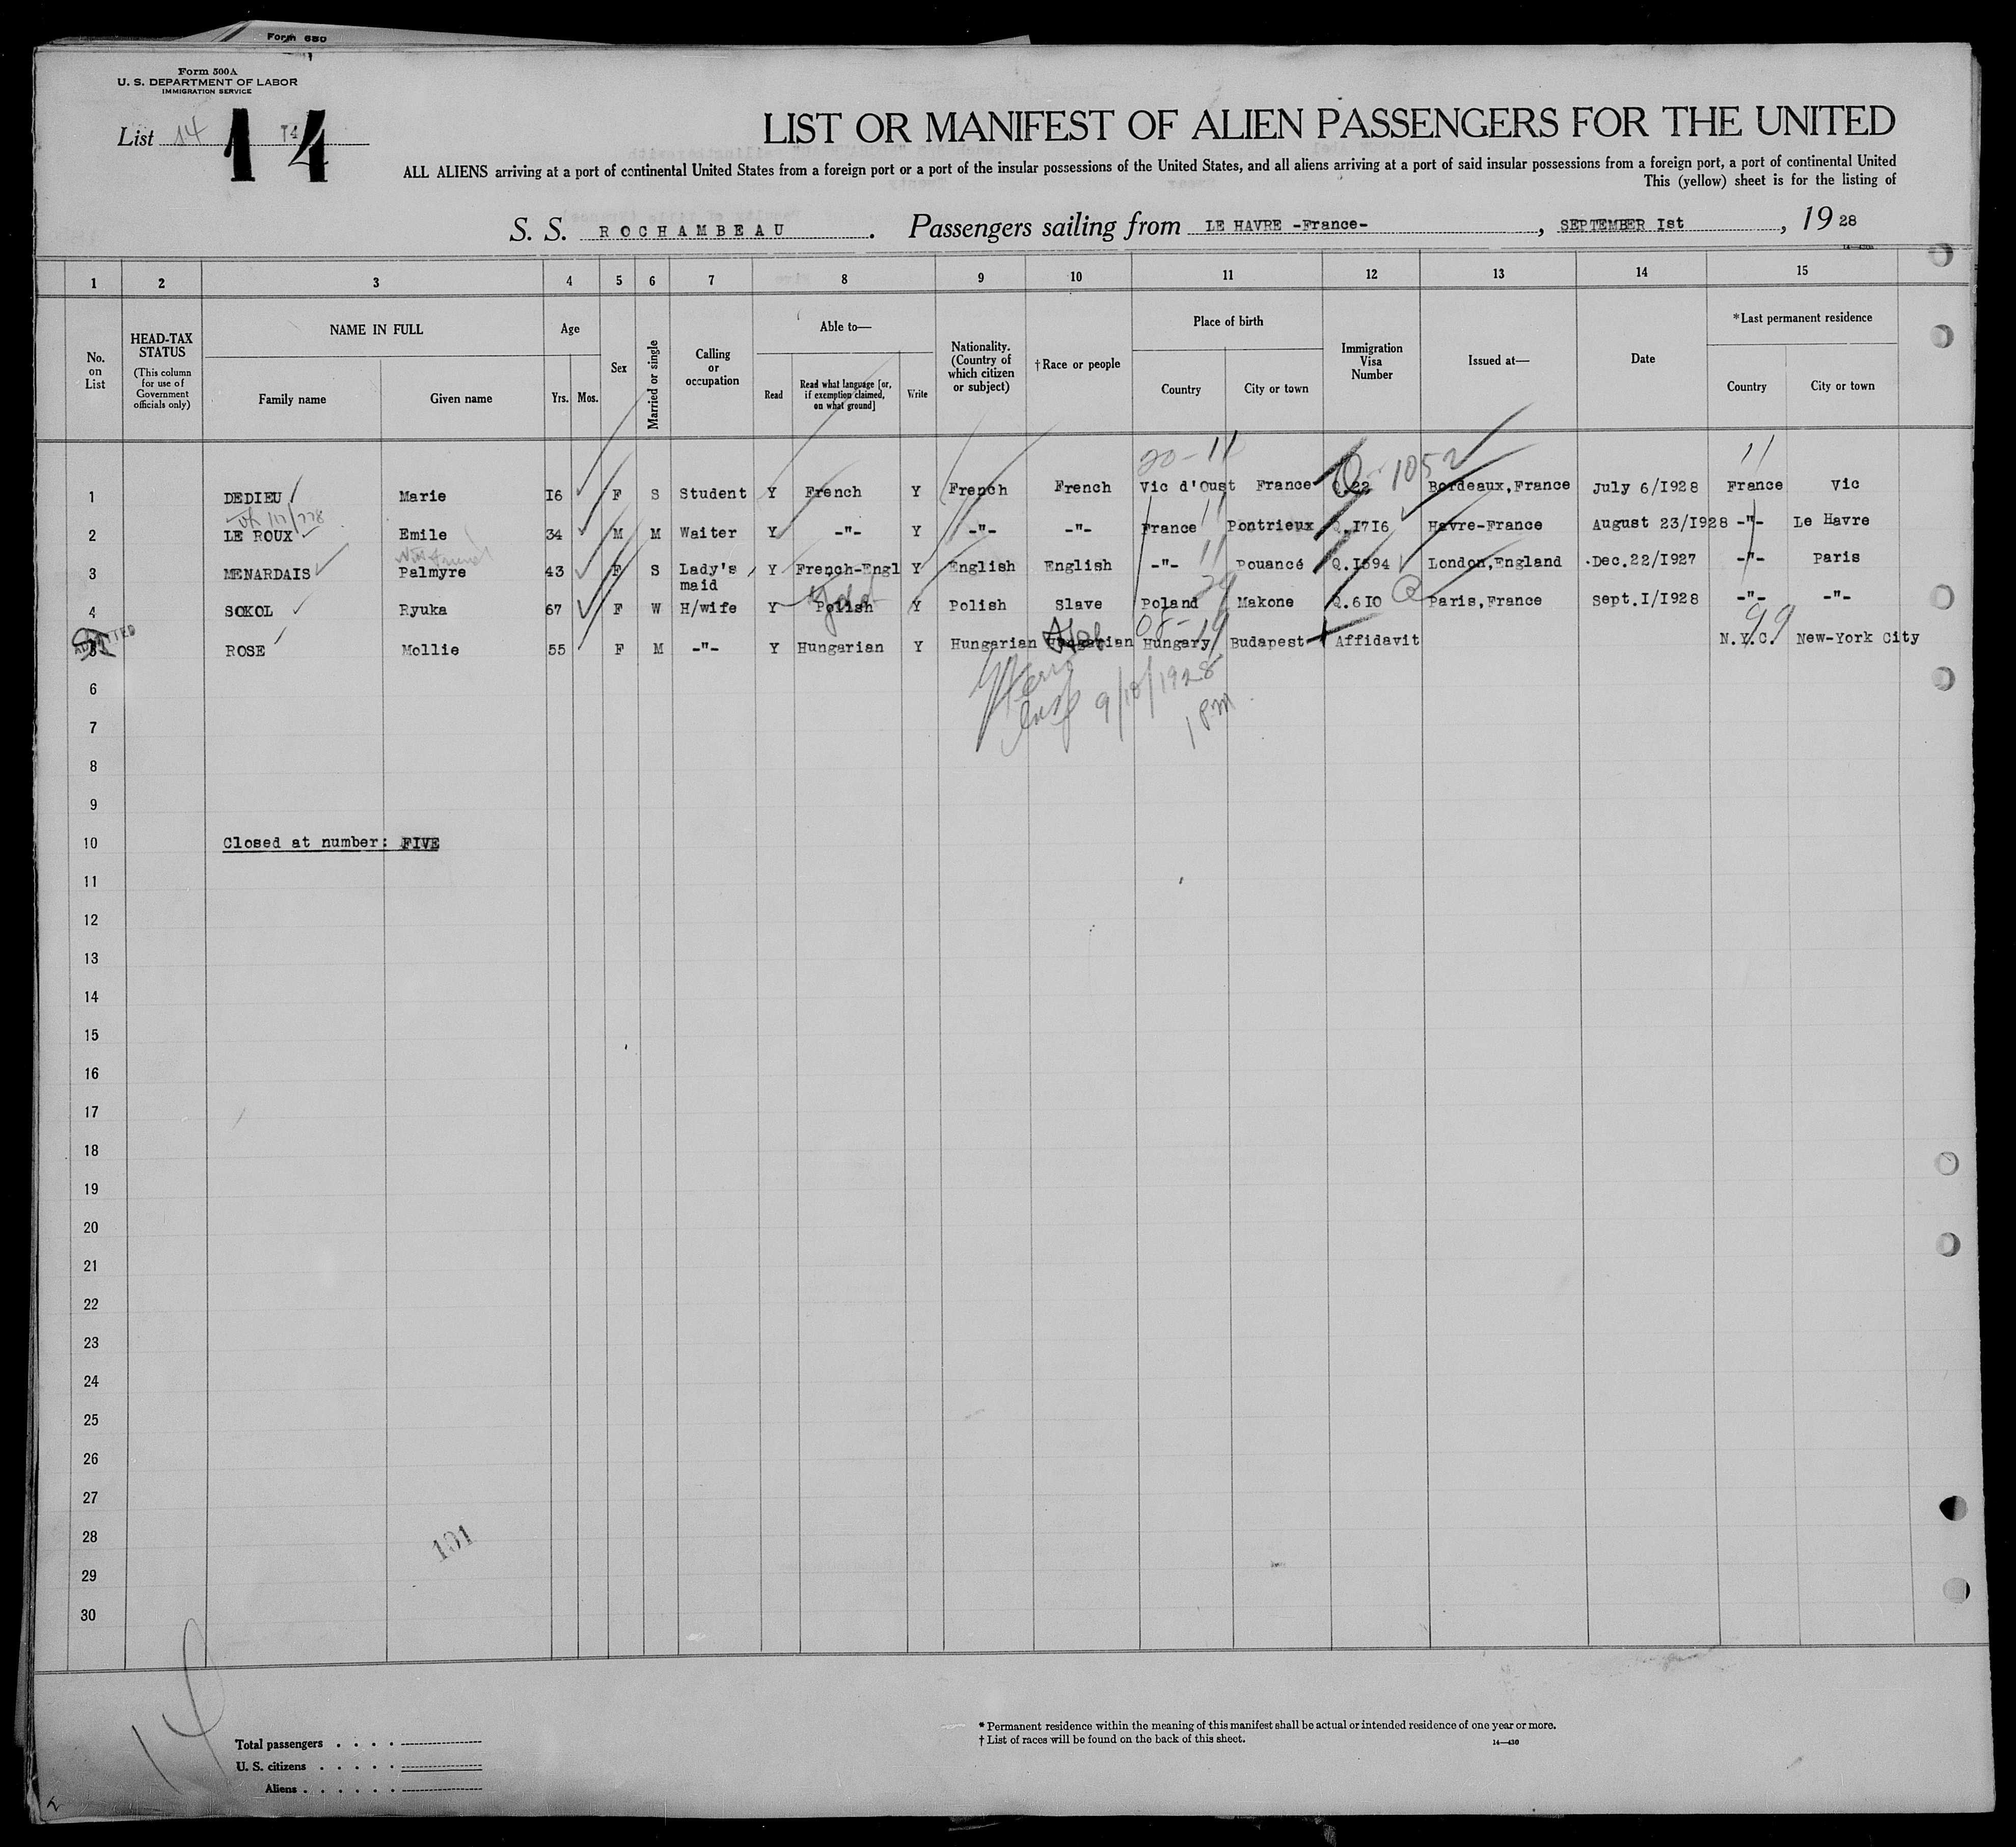 Form 680
Form 500A
U. S. DEPARTMENT OF LABOR
IMMIGRATION SERVICE
List 14 14
14
LIST OR MANIFEST OF ALIEN PASSENGERS FOR THE UNITED
ALL ALIENS arriving at a port of continental United States from a foreign port or a port of the insular possessions of the United States, and all aliens arriving at a port of said insular possessions from a foreign port, a port of continental United
This (yellow) sheet is for the listing of
S. S. ROCHAMBEAU . Passengers sailing from LE HAVRE -France- , SEPTEMBER Ist , 19 28
1 2 3 4 5 6 7 8 9 10 11 12 13 14 15
No. on List
HEAD-TAX STATUS
(This column for use of Government officials only)
NAME IN FULL
Family name
Given name
Age
Yrs. Mos.
Sex
Married or single
Calling or occupation
Able to—
Read
Read what language [or, if exemption claimed, on what ground]
Write
Nationality. (Country of which citizen or subject)
†Race or people
Place of birth
Country
City or town
Immigration Visa Number
Issued at—
Date
*Last permanent residence
Country
City or town
20-11 Q-1052 11
1 DEDIEU Marie I6 F S Student Y French Y French French Vic d'Oust France Q.22 Bordeaux,France July 6/I928 France Vic
2 LE ROUX Emile 34 M M Waiter Y -"- Y -"- -"- France Pontrieux Q.I7I6 Havre-France August 23/I928 -"- Le Havre
11
3 MENARDAIS Palmyre 43 F S Lady's maid Y French-Engl Y English English -"- Pouancé Q.I594 London,England Dec.22/I927 -"- Paris
4 SOKOL Ryuka 67 F W H/wife Y Polish Y Polish Slave Poland Makone Q.6I0 Paris,France Sept.I/I928 -"- -"-
ADMITTED
99
5 ROSE Mollie 55 F M -"- Y Hungarian Y Hungarian Hungarian Hungary Budapest Affidavit N.Y.C. New-York City
9/10/1928
1 PM
6
7
8
9
10 Closed at number: FIVE
11
12
13
14
15
16
17
18
19
20
21
22
23
24
25
26
27
28
101
29
30
14
Total passengers
U. S. citizens
Aliens
* Permanent residence within the meaning of this manifest shall be actual or intended residence of one year or more.
† List of races will be found on the back of this sheet.
14—430